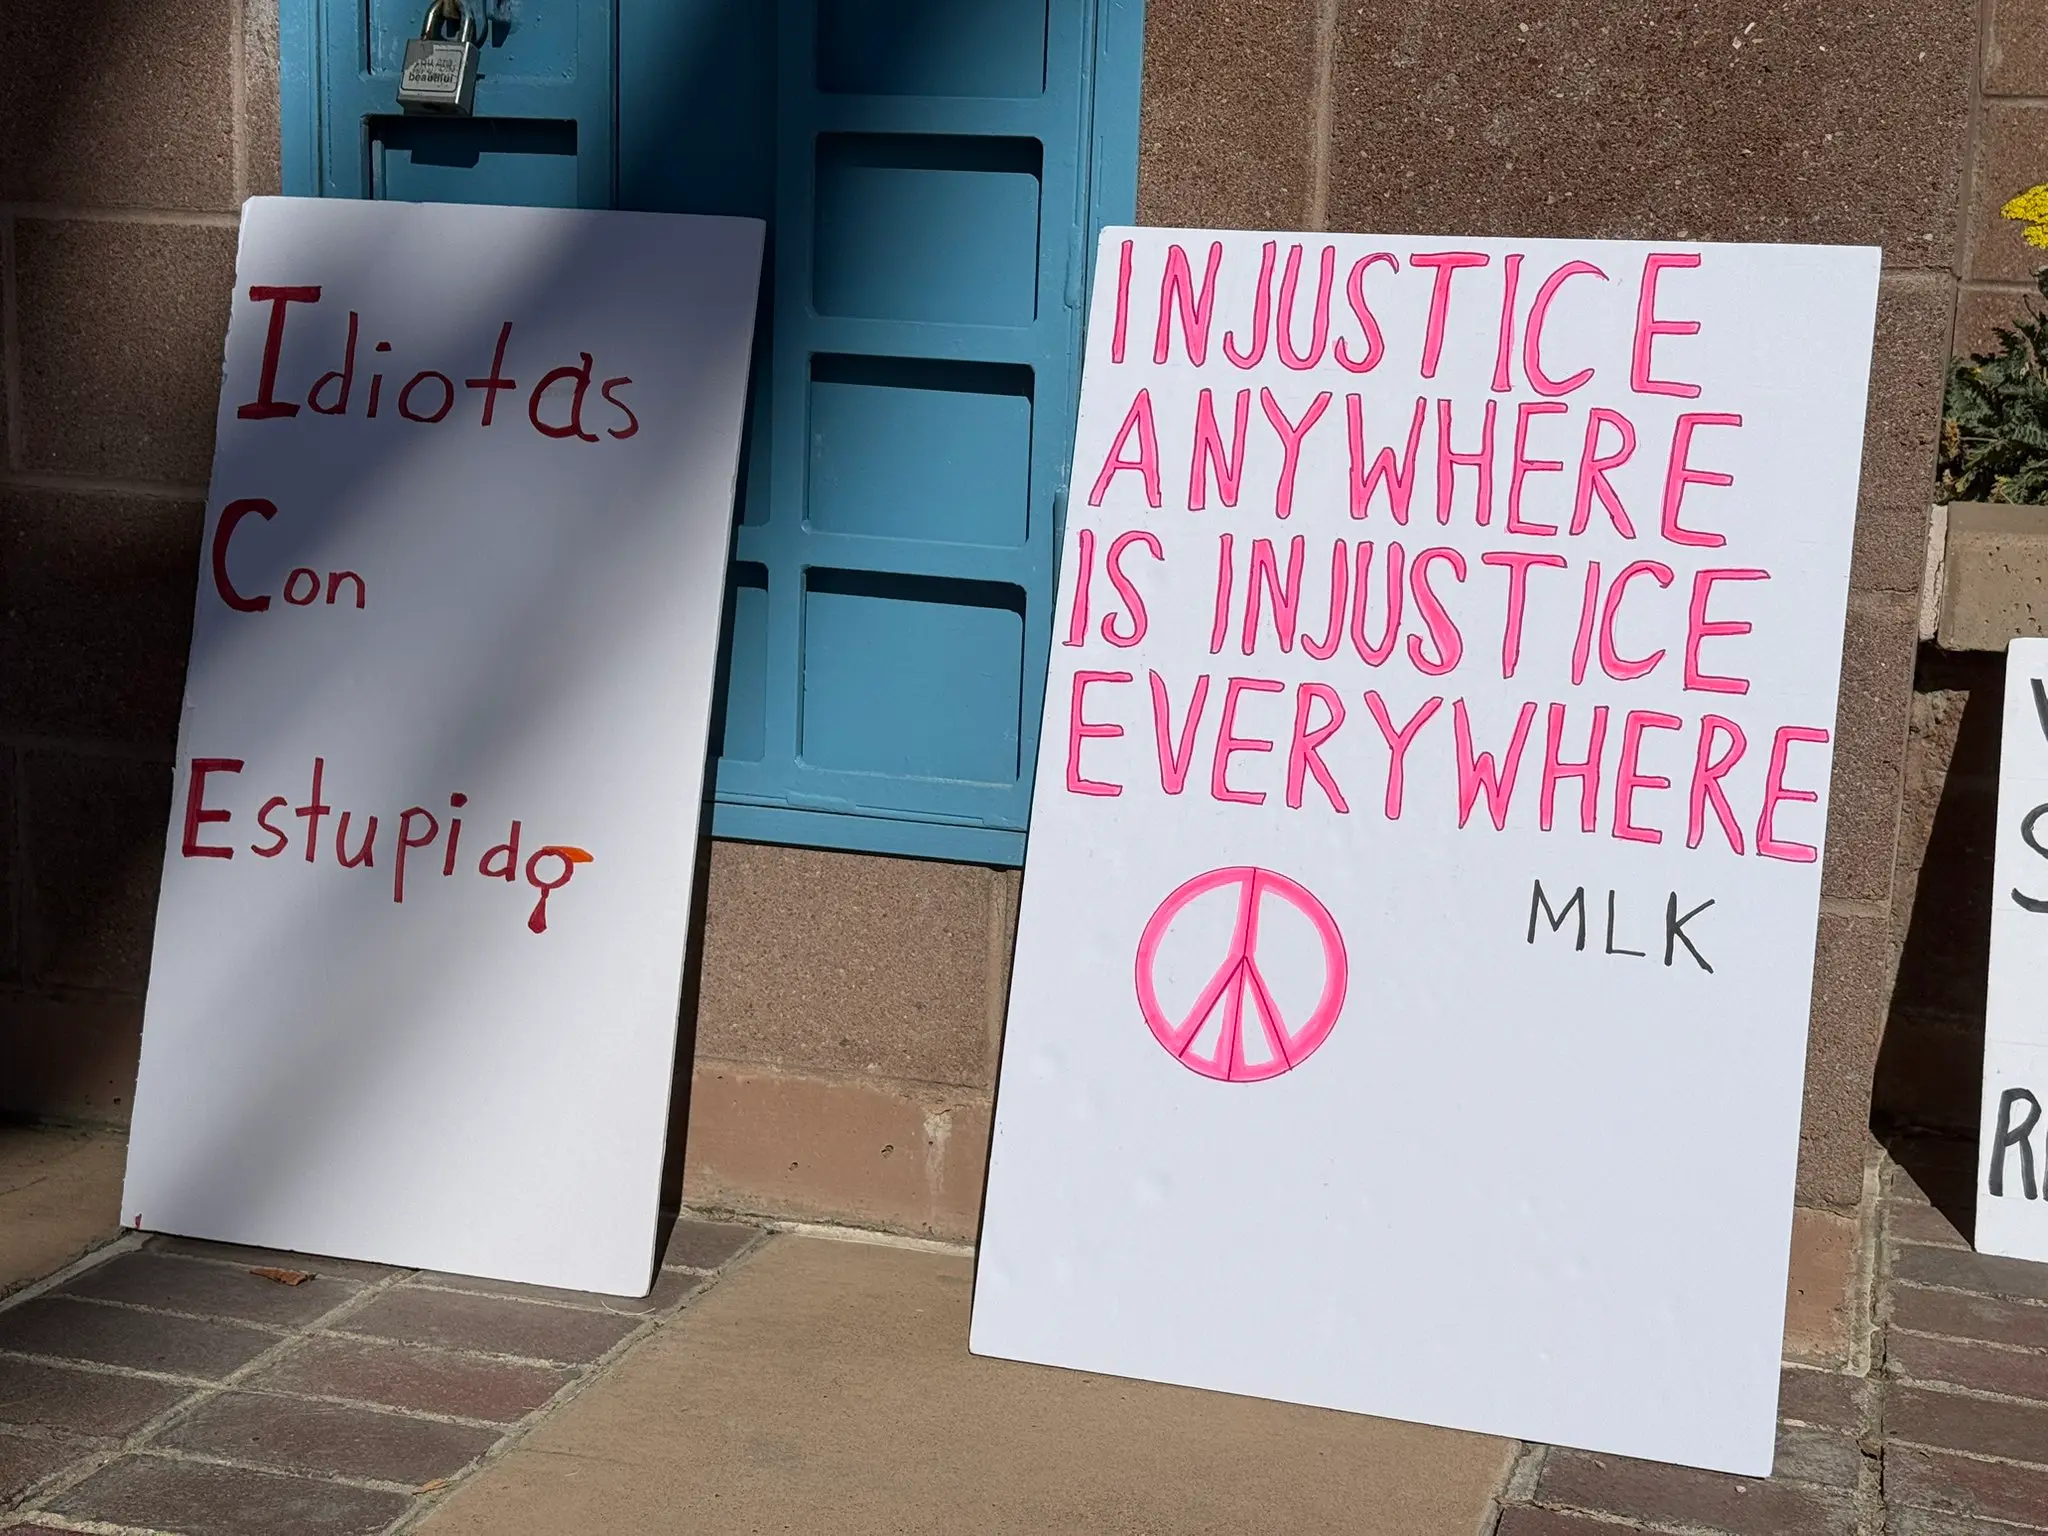 you are
beautiful
Idiotas
Con
Estupido
INJUSTICE
ANYWHERE
IS INJUSTICE
EVERYWHERE
MLK